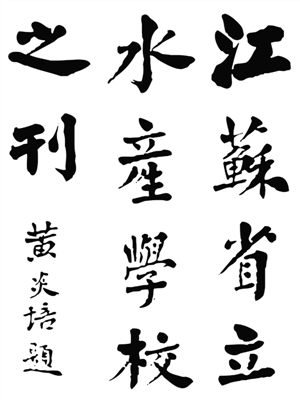 江蘇省立
水產學校
之刊
黃炎培題